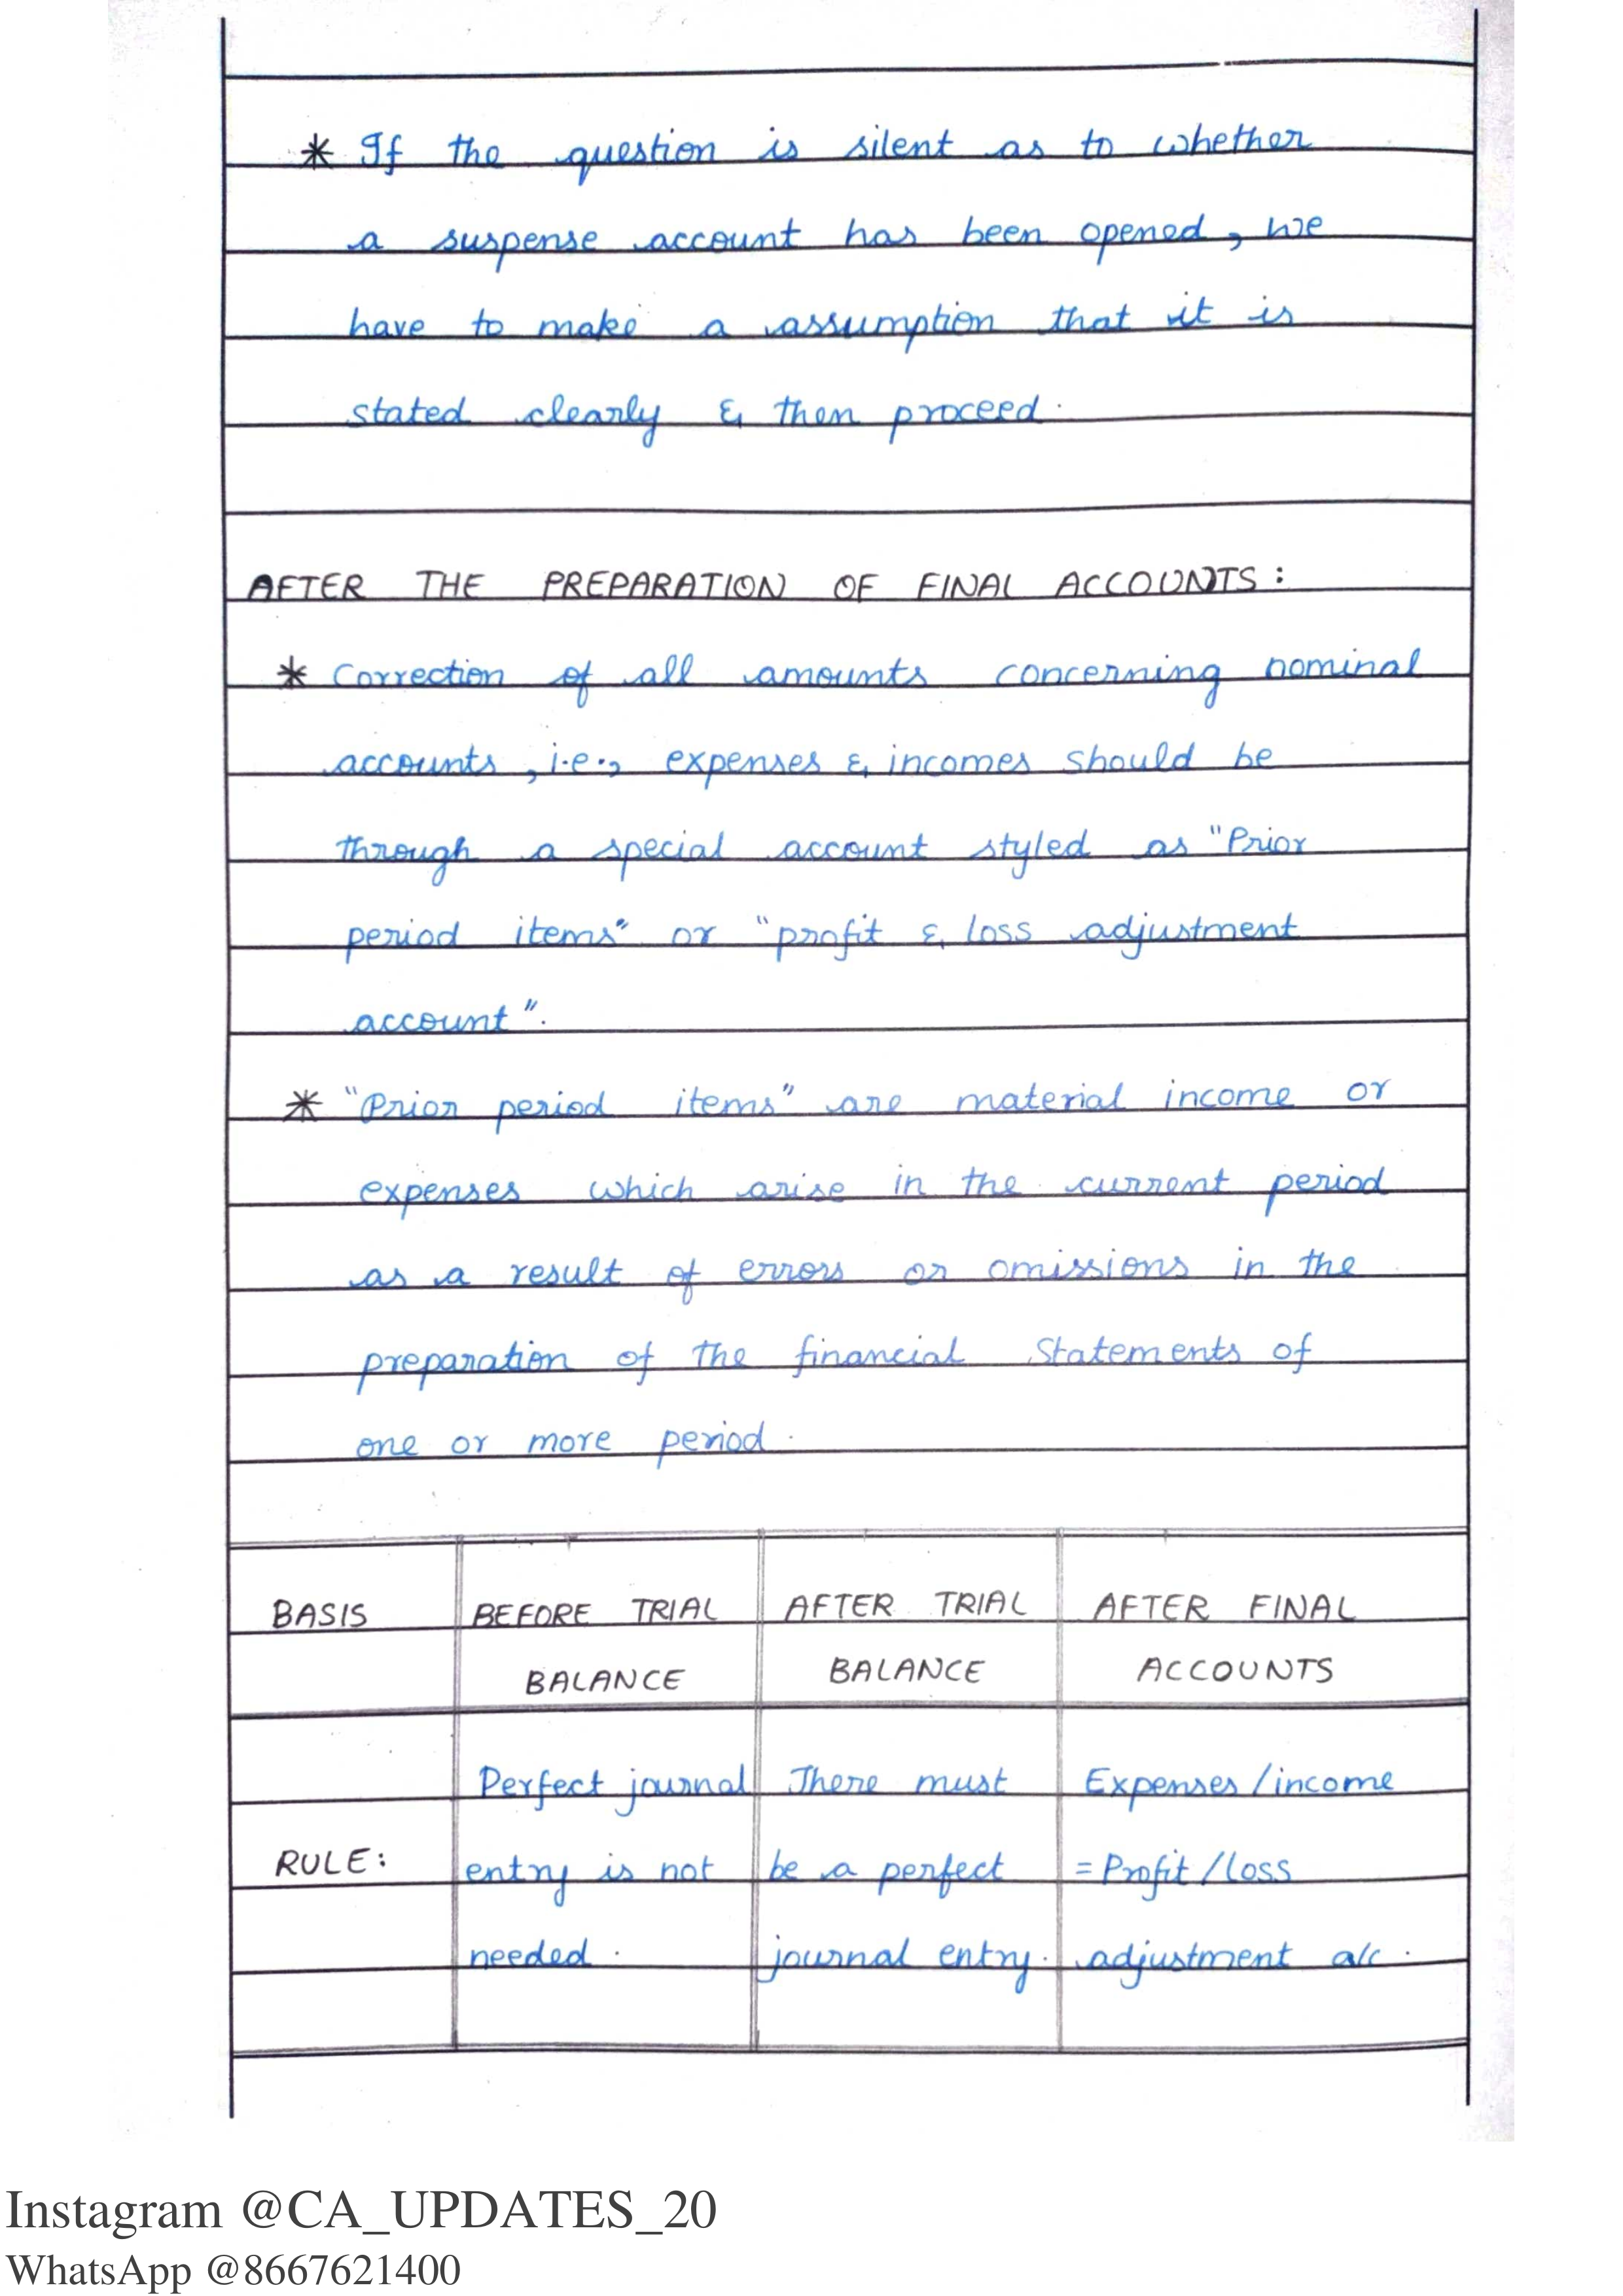 * If the question is silent as to whether
a suspense account has been opened, we
have to make a assumption that it is
stated clearly & then proceed.
AFTER THE PREPARATION OF FINAL ACCOUNTS:
* Correction of all amounts concerning nominal
accounts, i.e., expenses & incomes should be
through a special account styled as "Prior
period items" or "profit & loss adjustment
account".
* "Prior period items" are material income or
expenses which arise in the current period
as a result of errors or omissions in the
preparation of the financial statements of
one or more period.
BASIS BEFORE TRIAL AFTER TRIAL AFTER FINAL
BALANCE BALANCE ACCOUNTS
Perfect journal There must Expenses/income
RULE: entry is not be a perfect = Profit/loss
needed. journal entry. adjustment a/c.
Instagram @CA_UPDATES_20
WhatsApp @8667621400